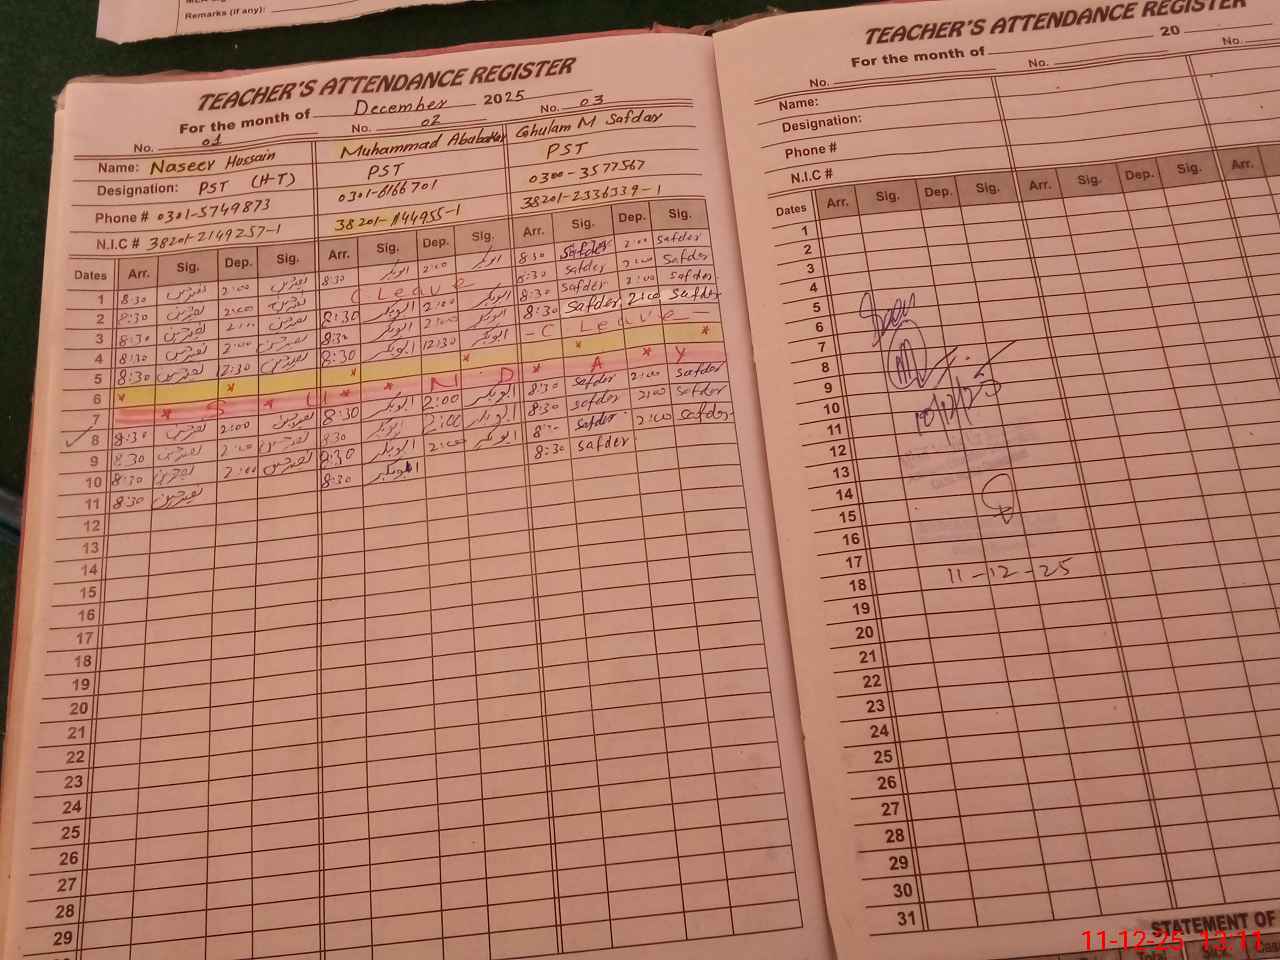 Remarks (if any):
TEACHER'S ATTENDANCE REGISTER
For the month of December 2025
No. 01 No. 02 No. 03
Name: Naseer Hussain Muhammad Ababakar Ghulam M Safdar
Designation: PST (H-T) PST PST
Phone # 0301-5749873 0301-6166701 0300-3577567
N.I.C # 38201-2149257-1 38201-1144955-1 38201-2336339-1
Dates Arr. Sig. Dep. Sig. Arr. Sig. Dep. Sig. Arr. Sig. Dep. Sig.
1 8:30 2:00 8:30 ابوبکر 2:00 ابوبکر 8:30 Safder 2:00 Safder
2 8:30 2:00 C Leave 8:30 Safder 2:00 Safder
3 8:30 2:00 8:30 ابوبکر 2:00 ابوبکر 8:30 Safder 2:00 Safder
4 8:30 2:00 8:30 ابوبکر 2:00 ابوبکر 8:30 Safder 2:00 Safder
5 8:30 12:30 8:30 ابوبکر 12:30 ابوبکر - C Leave -
6 * * * * * *
7 * S * U * * N D * A * Y
8 8:30 2:00 8:30 ابوبکر 2:00 ابوبکر 8:30 Safder 2:00 Safder
9 8:30 2:00 8:30 ابوبکر 2:00 ابوبکر 8:30 Safder 2:00 Safder
10 8:30 2:00 8:30 ابوبکر 2:00 ابوبکر Safder 2:00 Safder
11 8:30 8:30 ابوبکر 8:30 Safder
12
13
14
15
16
17
18
19
20
21
22
23
24
25
26
27
28
29
TEACHER'S ATTENDANCE REGISTER
For the month of 20
No. No. No.
Name:
Designation:
Phone #
N.I.C #
Dates Arr. Sig. Dep. Sig. Arr. Sig. Dep. Sig. Arr.
1
2
3
4
5
6
7
8
9
10 10/12/25
11
12
13
14
15
16
17
18 11-12-25
19
20
21
22
23
24
25
26
27
28
29
30
31
STATEMENT OF
Total
11-12-25 13:11